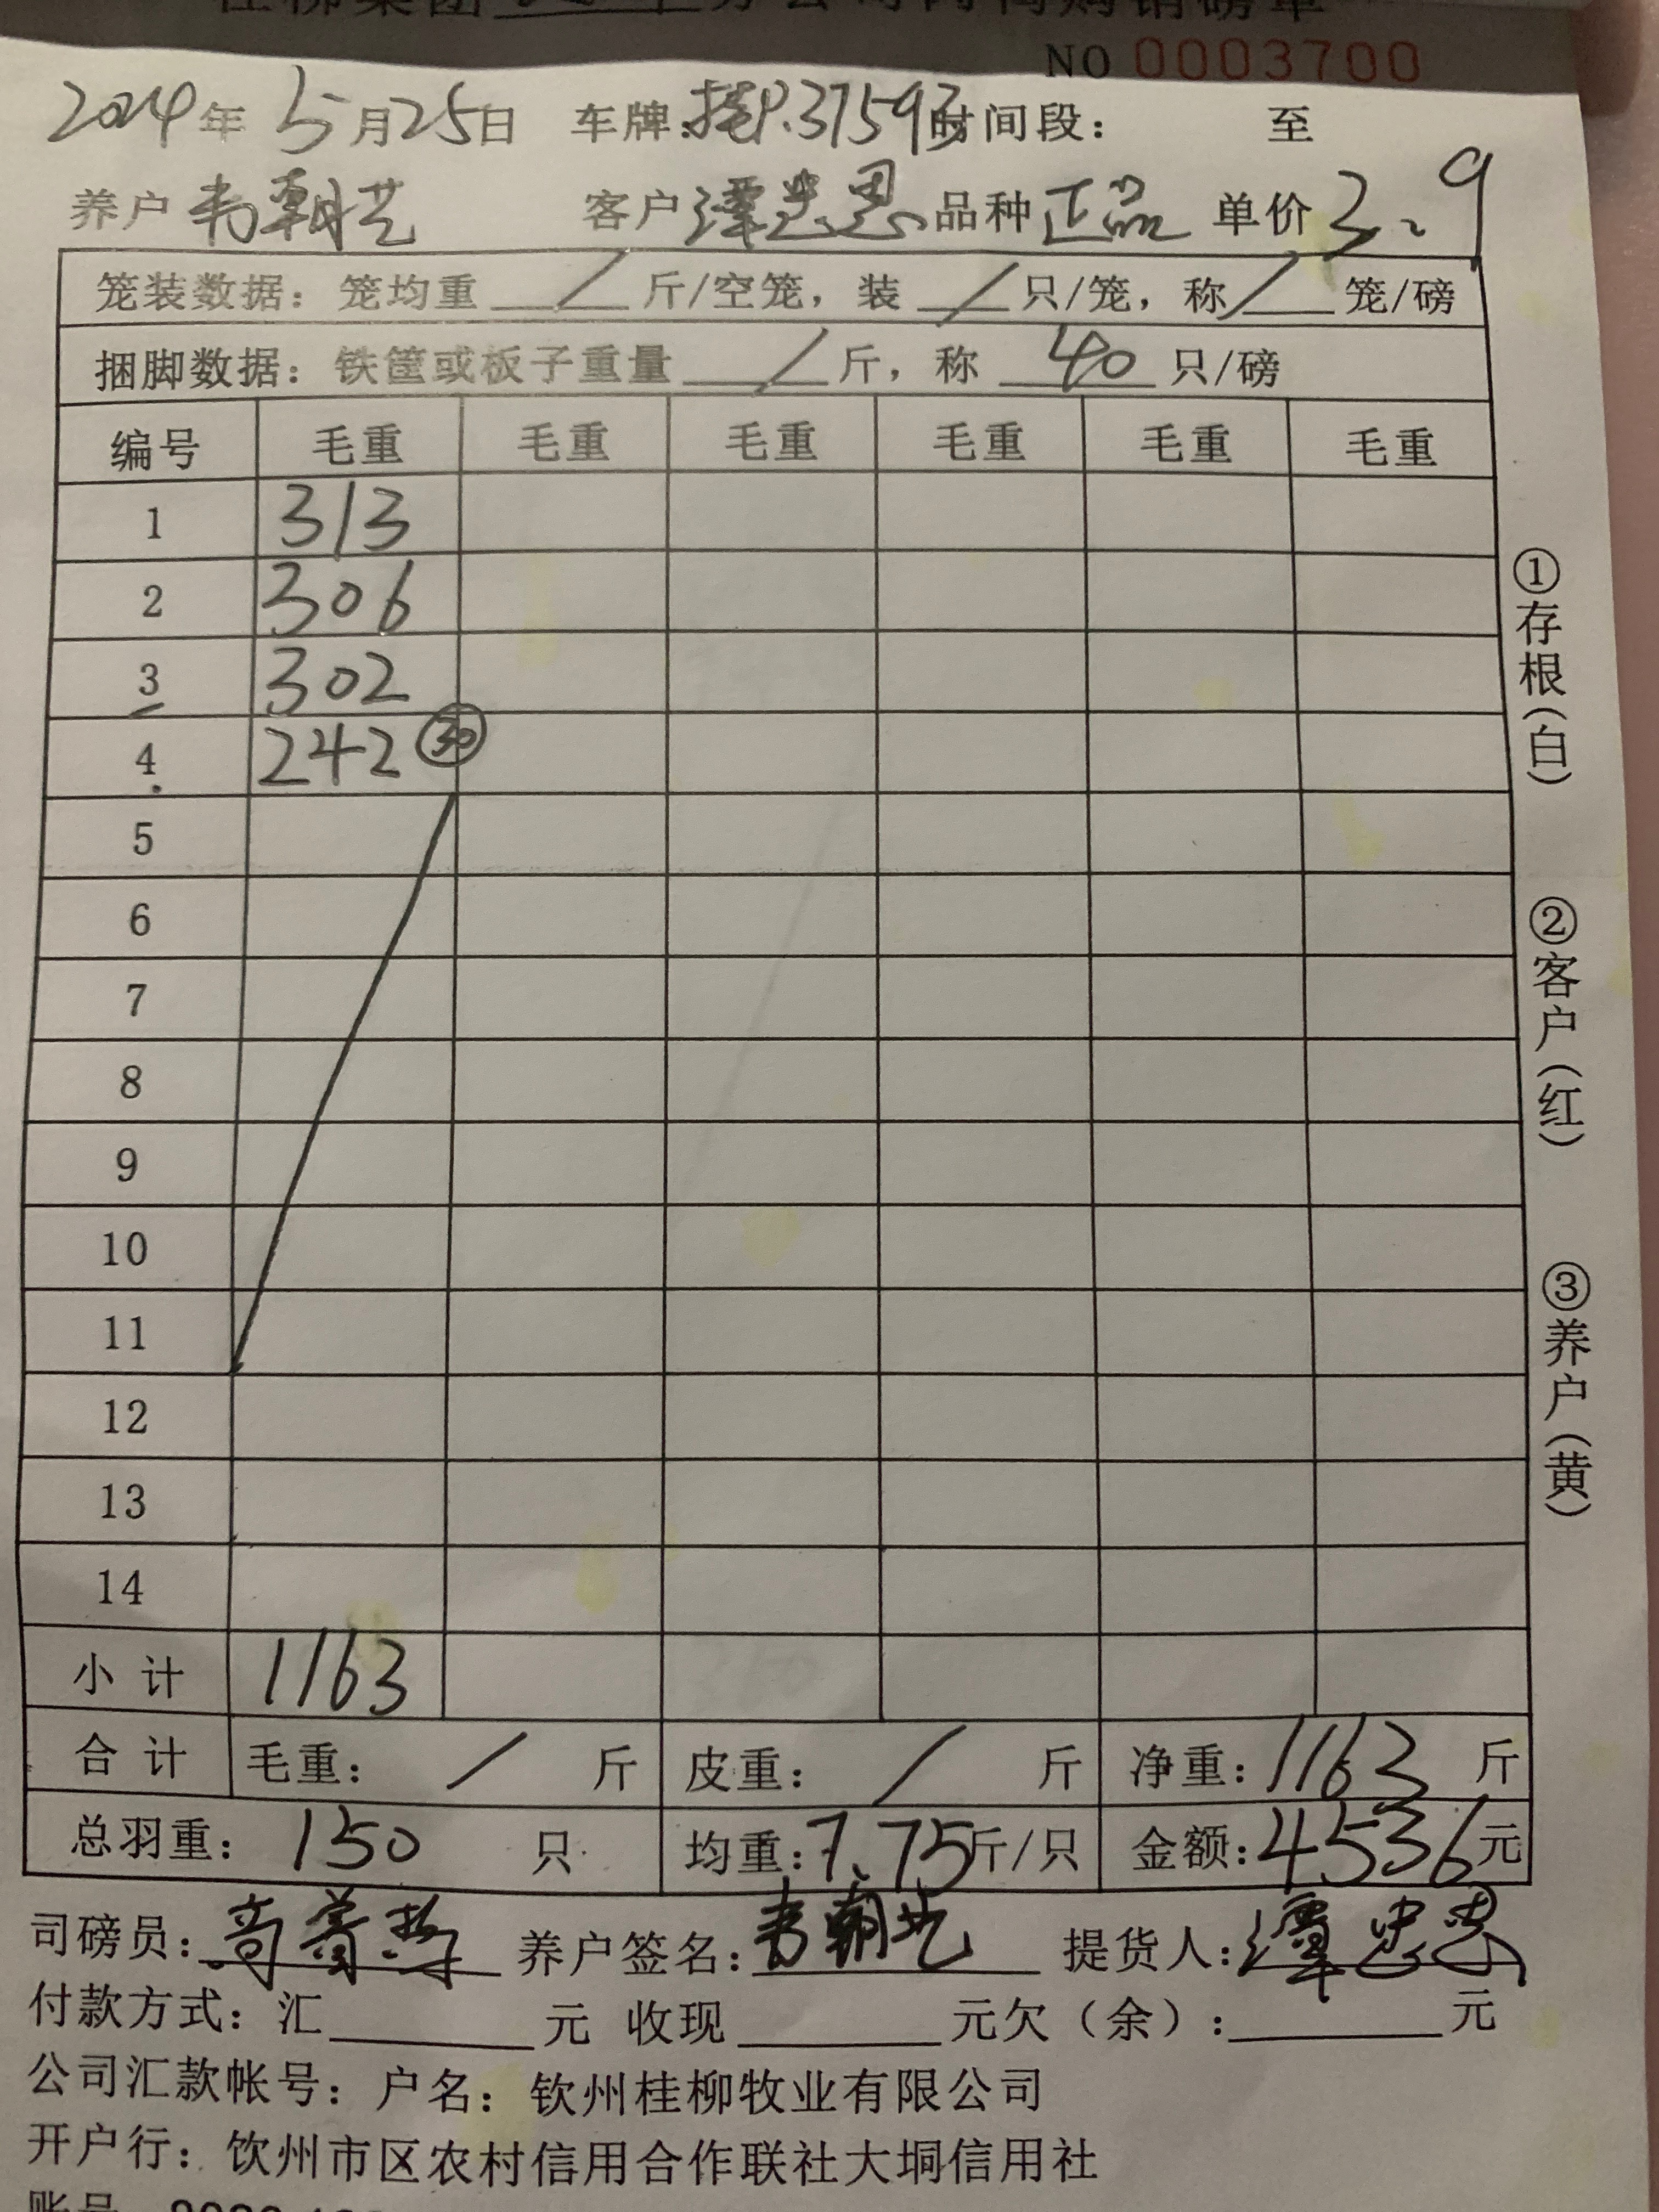 NO 0003700
2024年 5月25日 车牌：桂P.37593 时间段： 至
养户 韦朝艺 客户 谭忠思 品种 正品 单价 3.9
笼装数据：笼均重 / 斤/空笼，装 / 只/笼，称 / 笼/磅
捆脚数据：铁筐或板子重量 / 斤，称 40 只/磅
编号 毛重 毛重 毛重 毛重 毛重 毛重
1 313
2 306
3 302
4 242 30
5
6
7
8
9
10
11
12
13
14
小 计 1163
合 计 毛重： / 斤 皮重： / 斤 净重：1163 斤
总羽重： 150 只 均重：7.75斤/只 金额：4536元
司磅员： 养户签名：韦朝艺 提货人：谭忠思
付款方式：汇 元 收现 元欠（余）： 元
公司汇款帐号：户名：钦州桂柳牧业有限公司
开户行：饮州市区农村信用合作联社大垌信用社
①存根（白）
②客户（红）
③养户（黄）